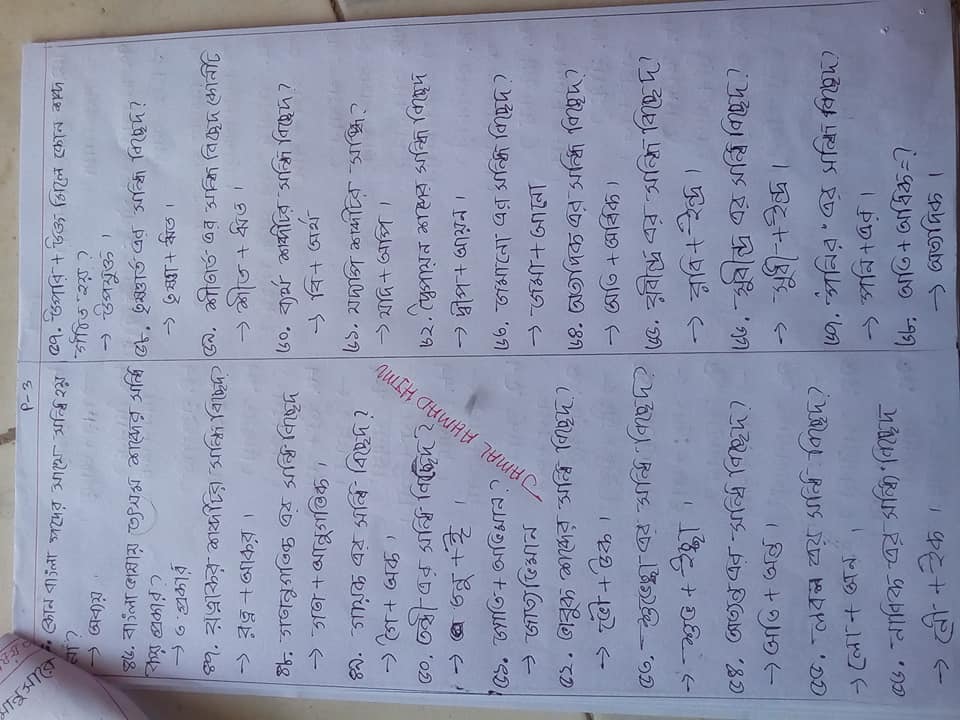 P-3
কোন বাংলা পদের সাথে সন্ধি হয়
না?
→ অব্যয়।
৪৬. বাংলা ভাষায় তৎসম শব্দের সন্ধি
কয় প্রকার?
→ ৩ প্রকার
৪৭. রত্নাকর শব্দটির সন্ধি বিচ্ছেদ?
→ রত্ন + আকর।
৪৮. গতানুগতিক এর সন্ধি বিচ্ছেদ
→ গত + আনুগতিক।
৪৯. গায়ক এর সন্ধি বিচ্ছেদ?
→ গৈ + অক।
৫০. তন্বী এর সন্ধি বিচ্ছেদ?
→ তনু + ঈ।
৫১. জাতি + অভিমান?
→ জাত্যভিমান
৫২. ভাবুক শব্দের সন্ধি বিচ্ছেদ?
→ ভৌ + উক।
৫৩. শুভেচ্ছা এর সন্ধি বিচ্ছেদ?
→ শুভ + ইচ্ছা।
৫৪. অত্যন্ত এর সন্ধি বিচ্ছেদ?
→ অতি + অন্ত।
৫৫. লবণ এর সন্ধি বিচ্ছেদ?
→ লো + অন।
৫৬. নাবিক এর সন্ধি বিচ্ছেদ
→ নৌ + ইক।
JAMAL AHMAD HJMU
৫৭. উপরি + উক্ত মিলে কোন শব্দ
গঠিত হয়?
→ উপযুক্ত।
৫৮. তৃষ্ণার্ত এর সন্ধি বিচ্ছেদ?
→ তৃষ্ণা + ঋত।
৫৯. শীতার্ত এর সন্ধি বিচ্ছেদ কোনটি
→ শীত + ঋত।
৬০. ব্যর্থ শব্দটির সন্ধি বিচ্ছেদ?
→ বি + অর্থ
৬১. যদ্যপি শব্দটির সন্ধি?
→ যদি + অপি।
৬২. দ্বৈপায়ন শব্দের সন্ধি বিচ্ছেদ
→ দ্বীপ + আয়ন।
৬৩. জমানো এর সন্ধি বিচ্ছেদ?
→ জমা + আনো
৬৪. অত্যদিক এর সন্ধি বিচ্ছেদ?
→ অতি + অধিক।
৬৫. রবীন্দ্র এর সন্ধি বিচ্ছেদ?
→ রবি + ইন্দ্র।
৬৬. সুধীন্দ্র এর সন্ধি বিচ্ছেদ?
→ সুধী + ইন্দ্র।
৬৭. "পনির" এর সন্ধি বিচ্ছেদ?
→ পনি + এর।
৬৮. অতি + অধিক = ?
→ অত্যদিক।